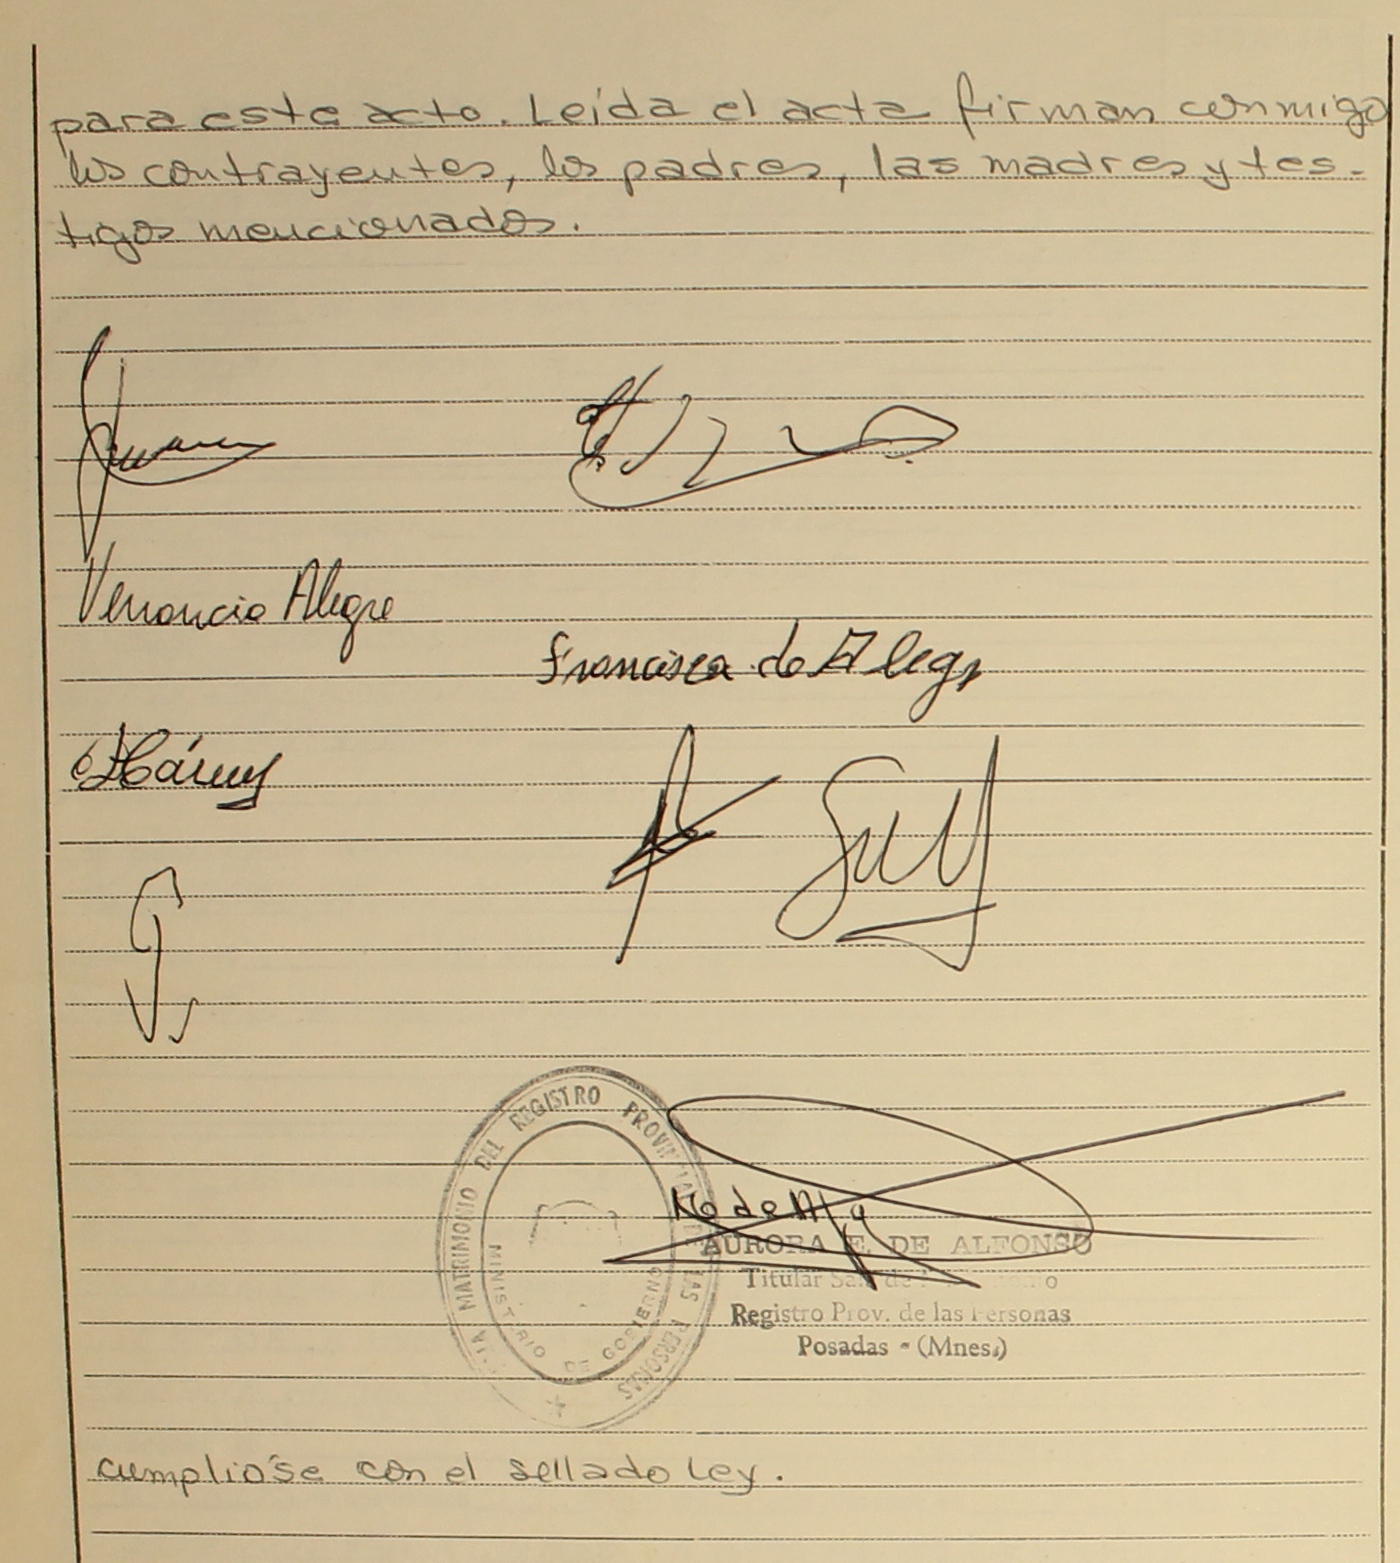 para este acto. Leída el acta firman conmigo
los contrayentes, los padres, las madres y tes-
tigos mencionados.
Venancio Alegre
Francisca de Alegre
MATRIMONIO DEL REGISTRO PROVINCIAL DE LAS PERSONAS
MINISTERIO DE GOBIERNO
AURORA E. DE ALFONSO
Titular Sala de
Registro Prov. de las Personas
Posadas - (Mnes.)
cumplióse con el sellado Ley.